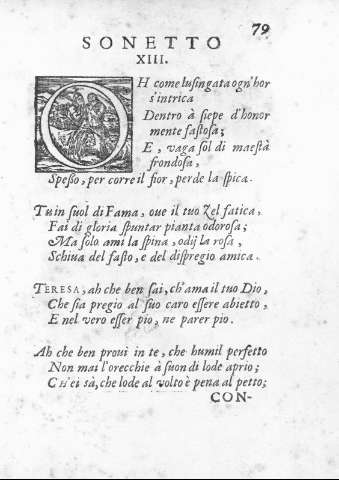 79
SONETTO
XIII.
OH come lusingata ogn'hor
s'intrica
Dentro à siepe d'honor
mente fastosa;
E, vaga sol di maestà
frondosa,
Spesso, per corre il fior, perde la spica.
Tu in suol di Fama, oue il tuo Zel fatica,
Fai di gloria spuntar pianta odorosa;
Ma solo ami la spina, odij la rosa,
Schiua del fasto, e del dispregio amica.
TERESA, ah che ben sai, ch'ama il tuo Dio,
Che sia pregio al suo caro essere abietto,
E nel vero esser pio, ne parer pio.
Ah che ben proui in te, che humil perfetto
Non mai l'orecchie à suon di lode aprìo;
Ch'ei sà, che lode al volto è pena al petto;
CON-